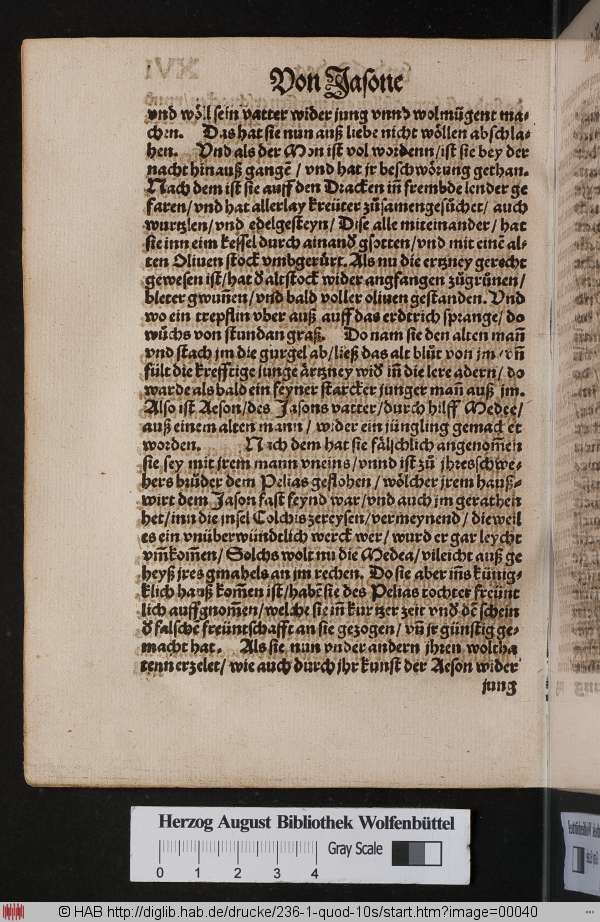 Von Jasone
vnd wöll sein vatter wider jung vnnd wolmůgent ma-
chen. Das hat sie nun auß liebe nicht wöllen abschla-
hen. Vnd als der Mon ist vol wordenn/ist sie bey der
nacht hinauß gangẽ / vnd hat jr beschwörung gethan.
Nach dem ist sie auff den Dracken in̄ frembde lender ge
faren/vnd hat allerlay kreüter zůsamengesůchet/ auch
wurtzlen/vnd edelgesteyn/ Dise alle miteinander/ hat
sie inn eim kessel durch ainand̕ gsotten/vnd mit einẽ al-
ten Oliuen stock vmbgerůrt. Als nu die ertzney gerecht
gewesen ist/hat d̕ alt stock wider angfangen zůgrünen/
bleter gwunen/vnd bald voller oliuen gestanden. Vnd
wo ein trepflin vber auß auff das erdtrich sprange/ do
wůchs von stundan graß. Do nam sie den alten man̄
vnd stach jm die gurgel ab/ließ das alt blůt von jm/vn̄
fült die krefftige junge ärtzney wid̕ in̄ die lere adern/ do
warde als bald ein feyner starcker junger man̄ auß jm.
Also ist Aeson/des Jasons vatter/durch hilff Medee/
auß einem alten mann/ wider ein jüngling gemachet
worden. Nach dem hat sie fälschlich angenom̄en
sie sey mit jrem mann vneins/vnnd ist zů jhres schwe-
hers brůder dem Pelias geflohen/ wölcher jrem hauß-
wirt dem Jason fast feynd war/vnd auch jm gerathen
het/inn die insel Colchis zereysen/vermeynend/ dieweil
es ein vnüberwündtlich werck wer/ wurd er gar leycht
vm̄kom̄en/ Solchs wolt nu die Medea/vileicht auß ge
heyß jres gmahels an jm rechen. Do sie aber im̄s künig-
klich hauß kom̄en ist/habẽ sie des Pelias tochter freünt
lich auffgnom̄en/welche sie im̄ kurtzer zeit vnd̕ dẽ schein
d̕ falschẽ freüntschafft an sie gezogen/ vn̄ jr günstig ge-
macht hat. Als sie nun vnder andern jhren woltha
tenn erzelet/ wie auch durch jhr kunst der Aeson wider
jung
Herzog August Bibliothek Wolfenbüttel
Gray Scale
0 1 2 3 4
© HAB http://diglib.hab.de/drucke/236-1-quod-10s/start.htm?image=00040